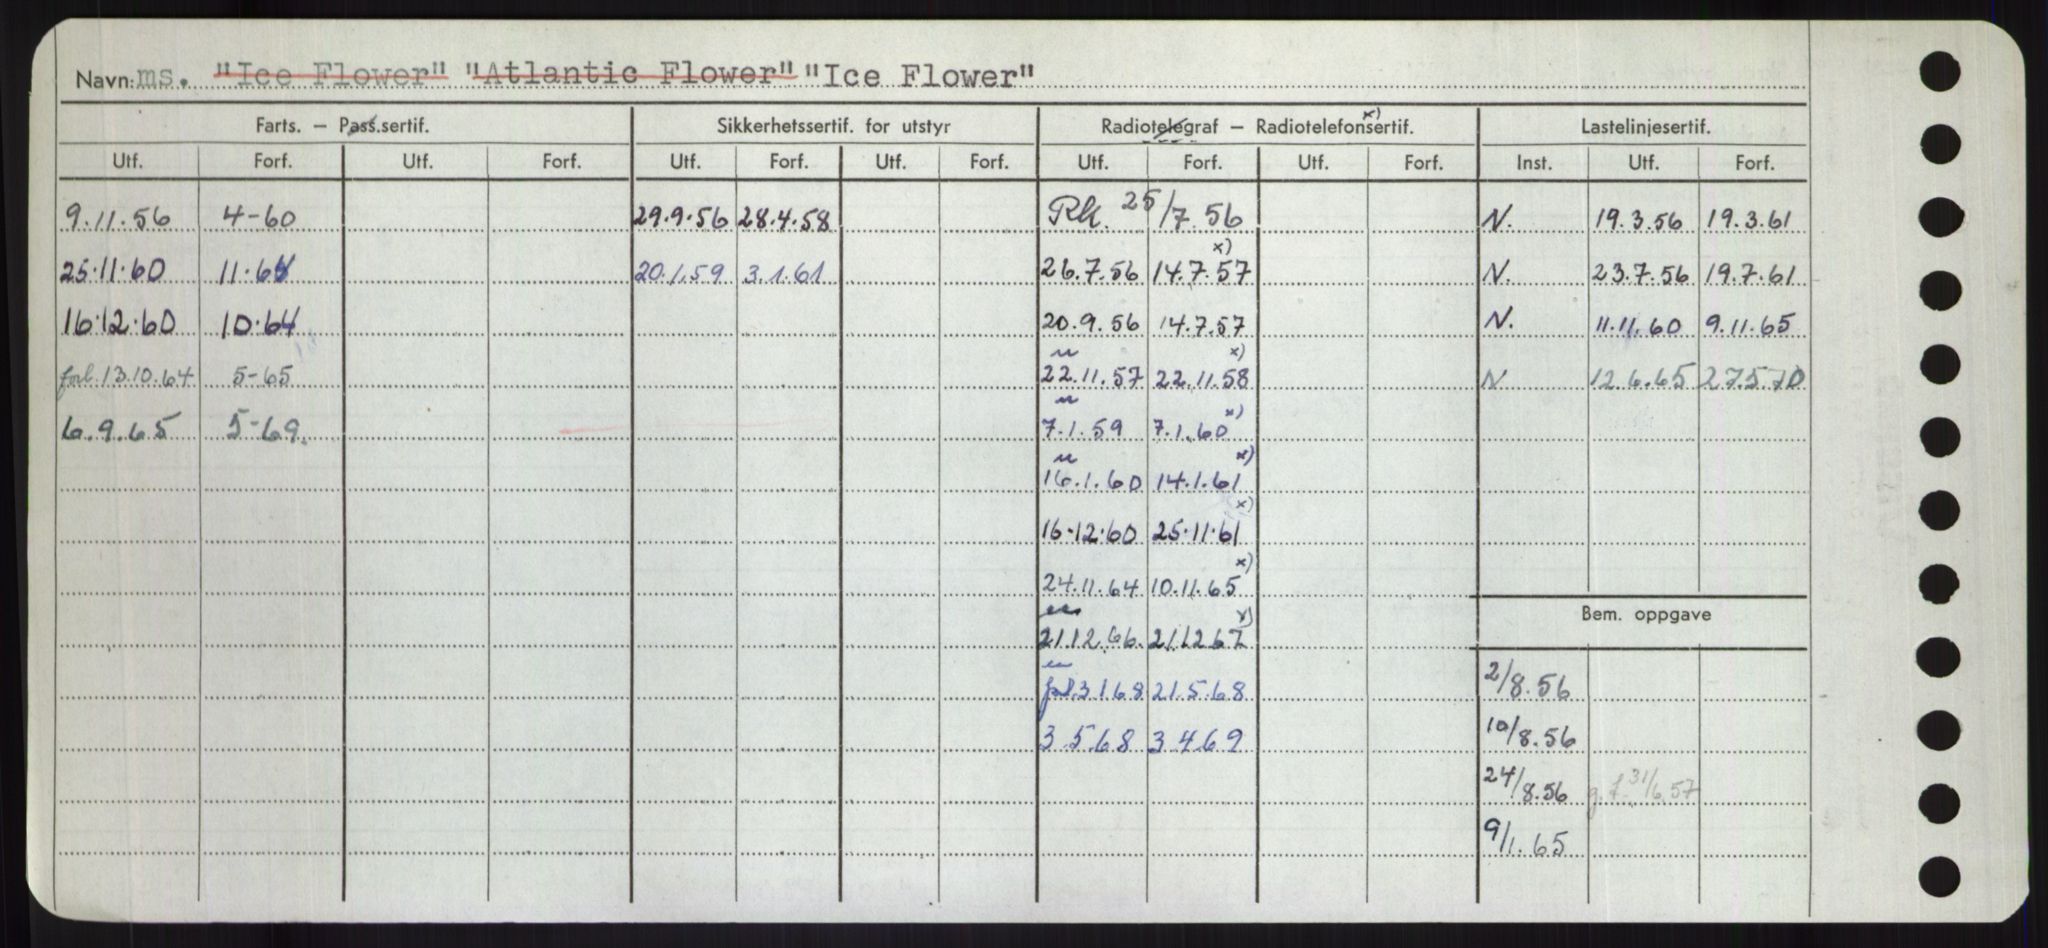 Navn: ms. "Ice Flower" "Atlantic Flower" "Ice Flower"
Farts. – Pass.sertif. Sikkerhetssertif. for utstyr Radiotelegraf – Radiotelefonsertif. x) Lastelinjesertif.
Utf. Forf. Utf. Forf. Utf. Forf. Utf. Forf. Utf. Forf. Utf. Forf. Inst. Utf. Forf.
9.11.56 4-60 29.9.56 28.4.58 Rk. 25/7.56 N. 19.3.56 19.3.61
25.11.60 11.64 20.1.59 3.1.61 26.7.56 14.7.57 x) N. 23.7.56 19.7.61
16.12.60 10.64 20.9.56 14.7.57 N. 11.11.60 9.11.65
forl. 13.10.64 5-65 22.11.57 22.11.58 x) N 12.6.65 27.5.70
6.9.65 5-69. 7.1.59 7.1.60 x)
16.1.60 14.1.61 x)
16.12.60 25.11.61 x)
24.11.64 10.11.65 x)
Bem. oppgave
21.12.66. 21.12.67 x)
2/8.56
forl. 3.1.68 21.5.68
10/8.56
3.5.68 3.4.69
24/8.56 g.f. 31/6.57
9/1.65